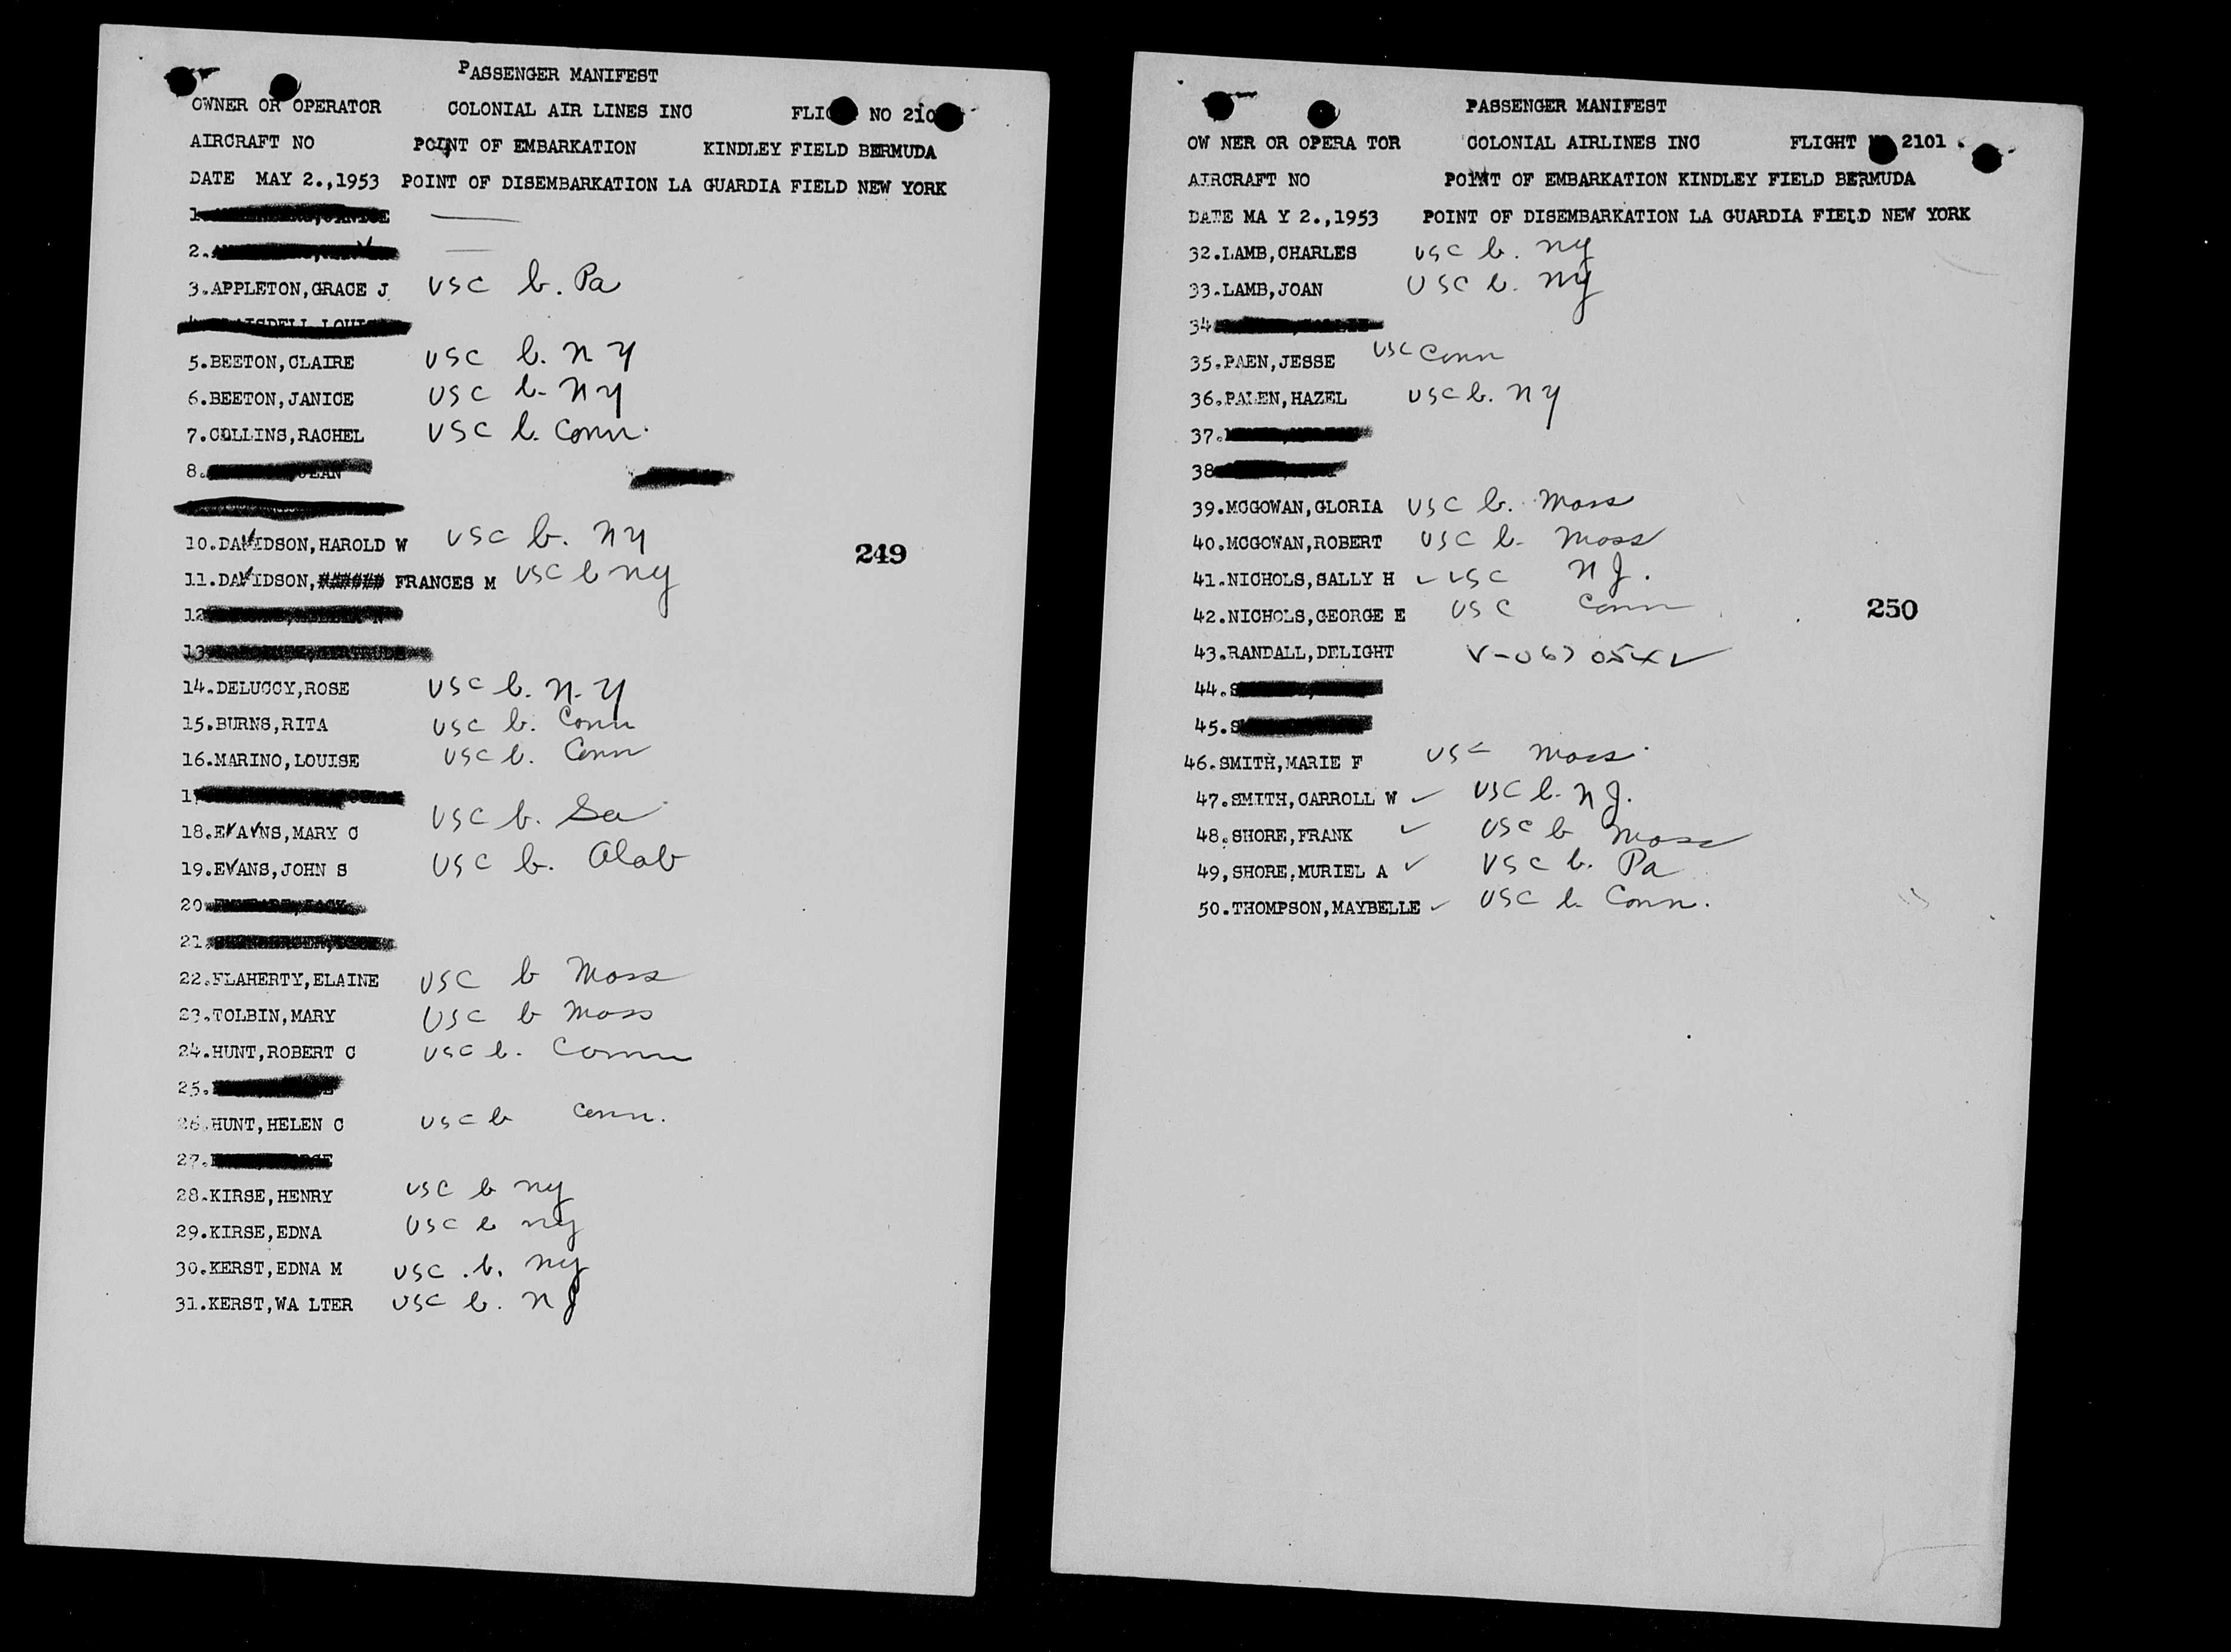 PASSENGER MANIFEST
OWNER OR OPERATOR COLONIAL AIR LINES INC NO
AIRCRAFT NO POINT OF EMBARKATION KINDLEY FIELD BERMUDA
DATE MAY 2.,1953 POINT OF DISEMBARKATION LA GUARDIA FIELD NEW YORK
1.
2.
3.APPLETON,GRACE J USC b. Pa
5.BEETON,CLAIRE USC b. NY
6.BEETON,JANICE USC b. NY
7.COLLINS,RACHEL USC b. Conn.
8.
10.DAVIDSON,HAROLD W USC b. NY
249
11.DAVIDSON, FRANCES M USC b NY
12
13
14.DELUCCY,ROSE USC b. N.Y
15.BURNS,RITA USC b. Conn
16.MARINO,LOUISE USC b. Conn
18.EVAVNS,MARY C USC b.
19.EVANS,JOHN S USC b. Alab
20
21
22.FLAHERTY,ELAINE USC b Mass
23.TOLBIN,MARY USC b Mass
24.HUNT,ROBERT C USC b. Conn
25.
26.HUNT,HELEN C USC b Conn.
27.
28.KIRSE,HENRY USC b NY
29.KIRSE,EDNA USC b NY
30.KERST,EDNA M USC . b. NY
31.KERST,WA LTER USC b. NJ
PASSENGER MANIFEST
OW NER OR OPERA TOR COLONIAL AIRLINES INC FLIGHT 2101
AIRCRAFT NO POINT OF EMBARKATION KINDLEY FIELD BERMUDA
DATE MA Y 2.,1953 POINT OF DISEMBARKATION LA GUARDIA FIELD NEW YORK
32.LAMB,CHARLES USC b. NY
33.LAMB,JOAN USC b. NY
34
35.PAEN,JESSE USC Conn
36.PALEN,HAZEL USC b. NY
37.
38
39.MCGOWAN,GLORIA USC b. Mass
40.MCGOWAN,ROBERT USC b. Mass
41.NICHOLS,SALLY H ✓ USC NJ.
42.NICHOLS,GEORGE E USC Conn
250
43.RANDALL,DELIGHT
44.S
45.S
46.SMITH,MARIE F USC Mass.
47.SMITH,CARROLL W ✓ USC b. NJ.
48.SHORE,FRANK ✓ USC b Mass
49,SHORE,MURIEL A ✓ USC b. Pa
50.THOMPSON,MAYBELLE ✓ USC b. Conn.